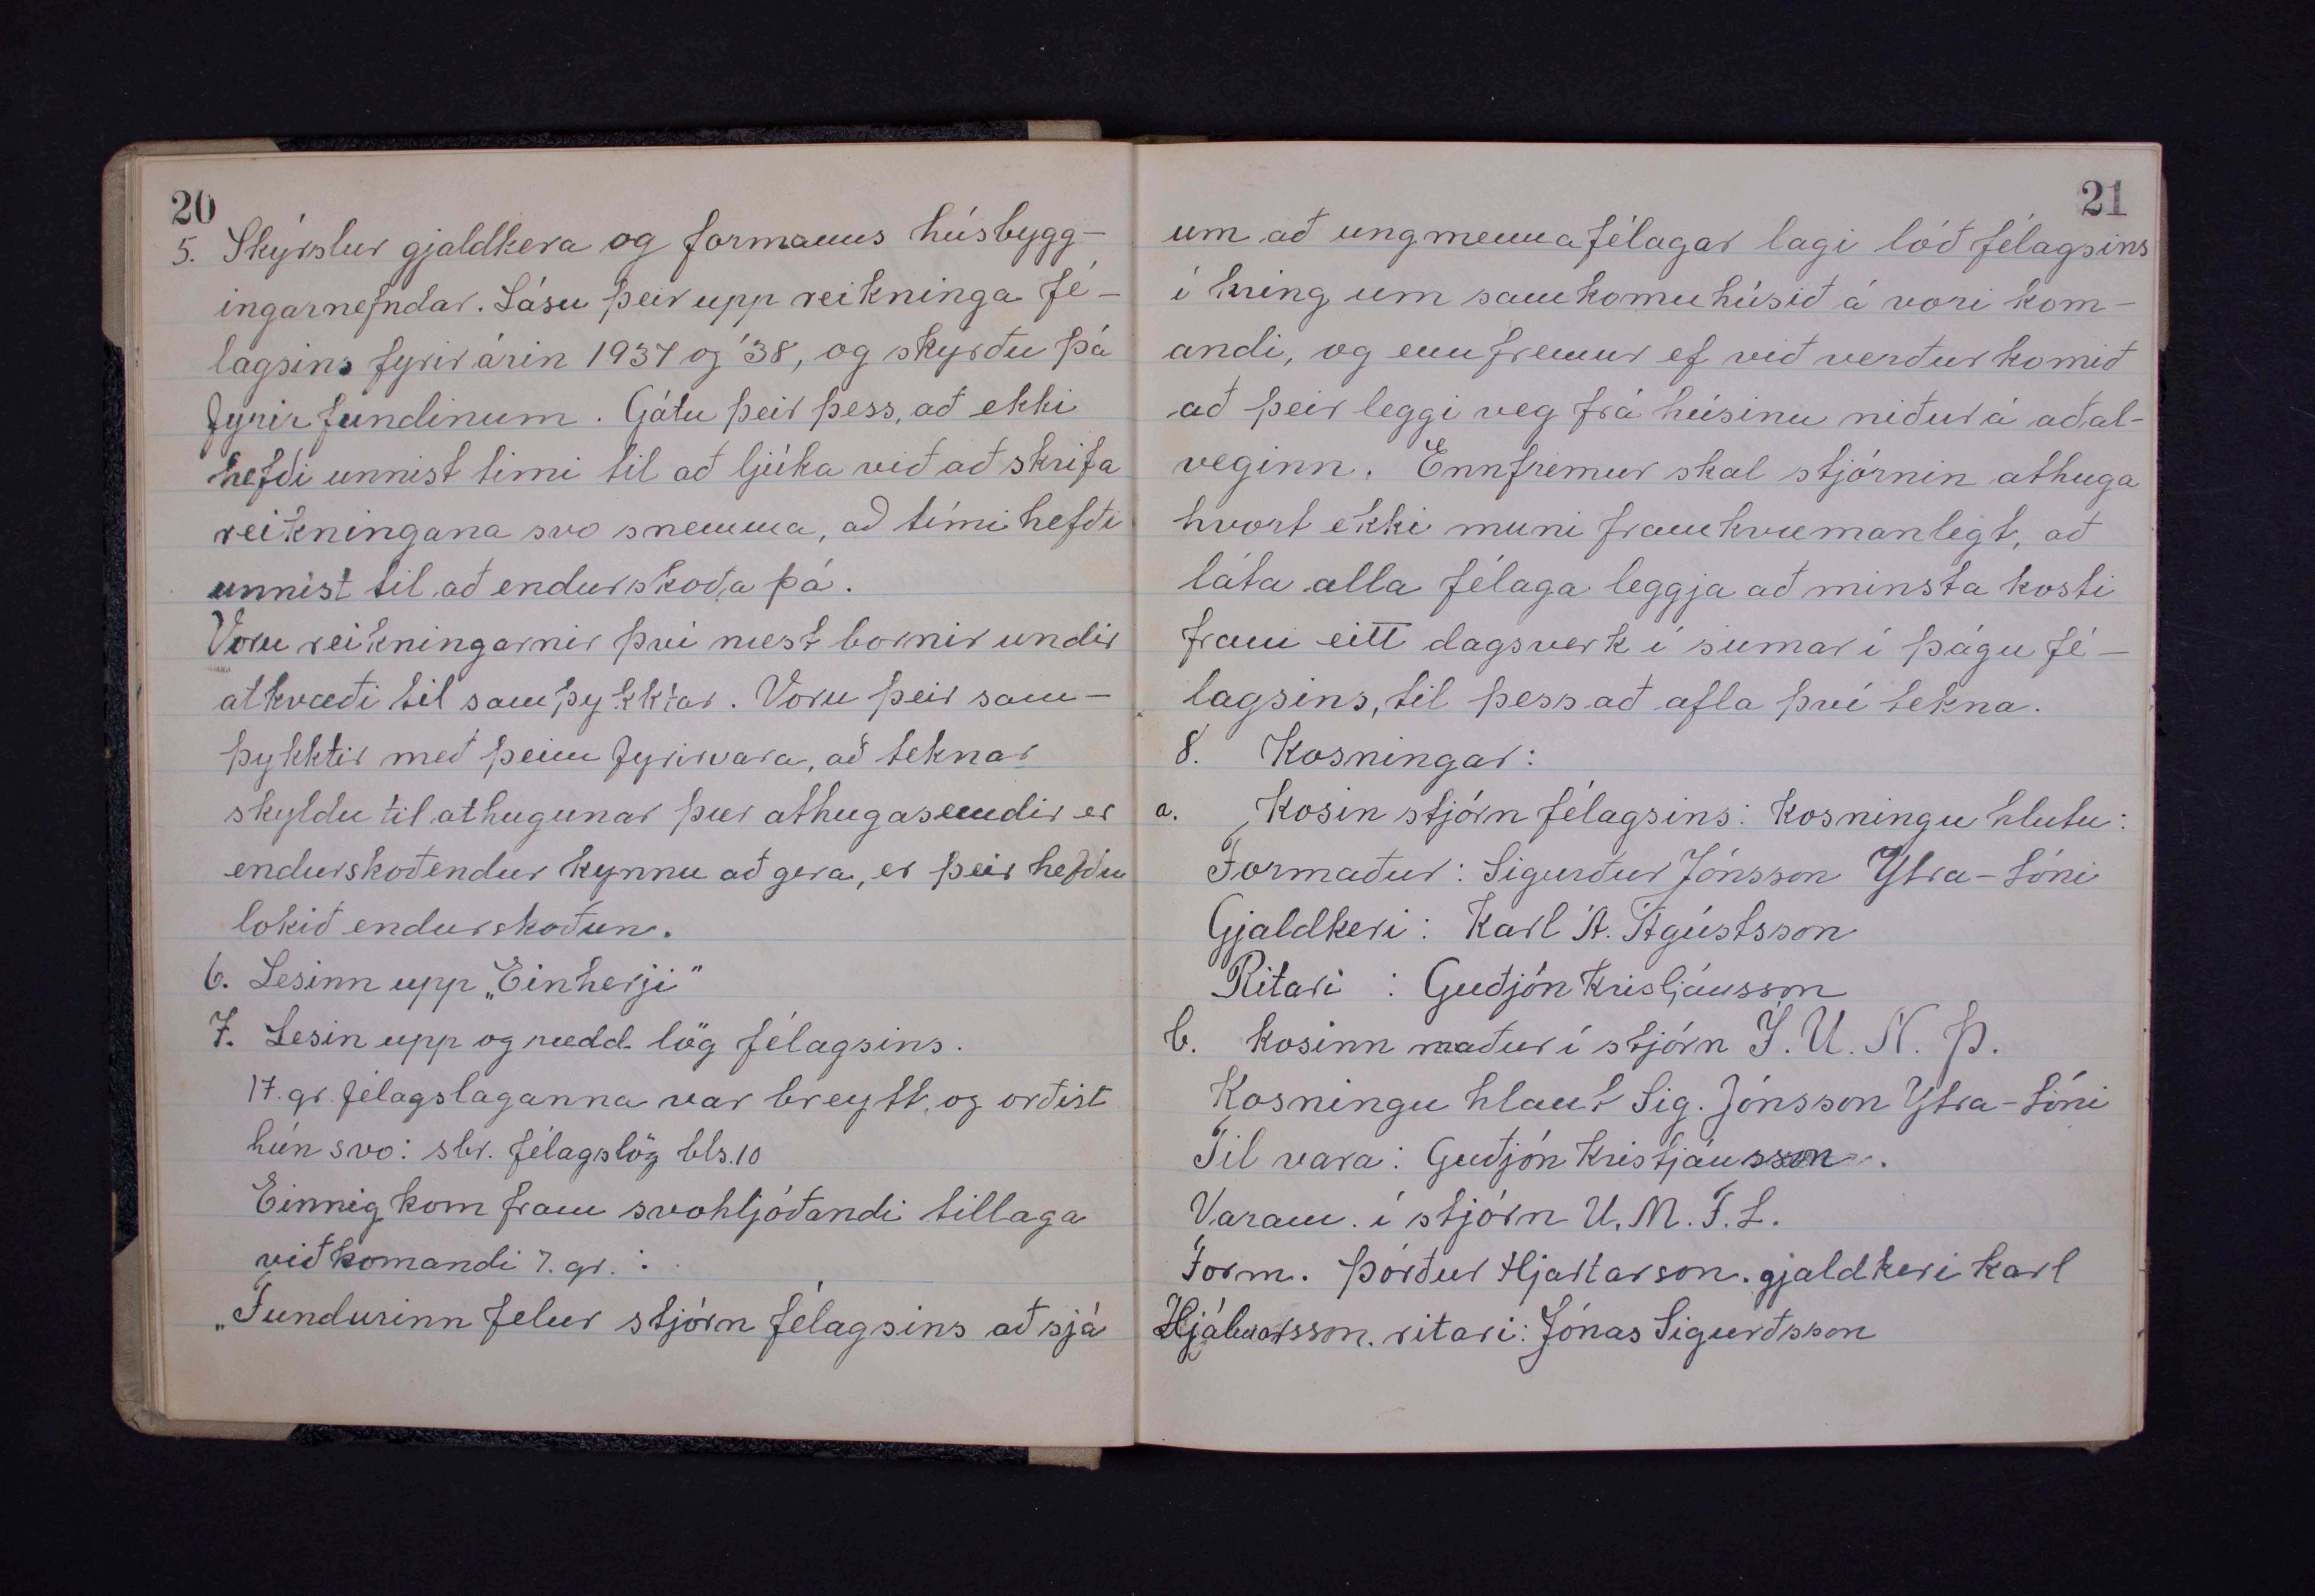 20
5. Skýrslur gjaldkera og formanns húsbygg-
ingarnefndar. Lásu þeir upp reikninga fé-
lagsins fyrir árin 1937 og '38, og skýrðu þá
fyrir fundinum. Gátu þeir þess, að ekki
hefði unnist timi til að ljúka við að skrifa
reikningana svo snemma, að tími hefði
unnist til að endurskoða þá.
Voru reikningarnir því næst bornir undir
atkvæði til samþykktar. Voru þeir sam-
þykktir með þeim fyrirvara, að teknar
skyldu til athugunar þær athugasemdir er
endurskoðendur kynnu að gera, er þeir hefðu
lokið endurskoðun.
6. Lesinn upp „Einherji"
7. Lesin upp og rædd lög félagsins.
17. gr. félagslaganna var breytt, og orðist
hún svo: sbr. félagslög bls. 10
Einnig kom fram svohljóðandi tillaga
viðkomandi 7. gr. :
„Fundurinn felur stjórn félagsins að sjá
21
um að ungmennafélagar lagi lóð félagsins
í kring um samkomuhúsið á vori kom-
andi, og ennfremur ef við verður komið
að þeir leggi veg frá húsinu niður á aðal-
veginn. Ennfremur skal stjórnin athuga
hvort ekki muni framkvæmanlegt, að
láta alla félaga leggja að minsta kosti
fram eitt dagsverk í sumar í þágu fé-
lagsins, til þess að afla því tekna.
8. Kosningar:
a. Kosin stjórn félagsins: Kosningu hlutu:
Formaður: Sigurður Jónsson Ytra-Lóni
Gjaldkeri: Karl Á. Ágústsson
Ritari : Guðjón Kristjánsson
b. Kosinn maður í stjórn Í. U. N. Þ.
Kosningu hlaut Sig. Jónsson Ytra-Lóni
Til vara: Guðjón Kristjánsson.
Varam. í stjórn U. M. F. L.
Form. Þórður Hjartarson. gjaldkeri Karl
Hjálmarsson. ritari: Jónas Sigurðsson